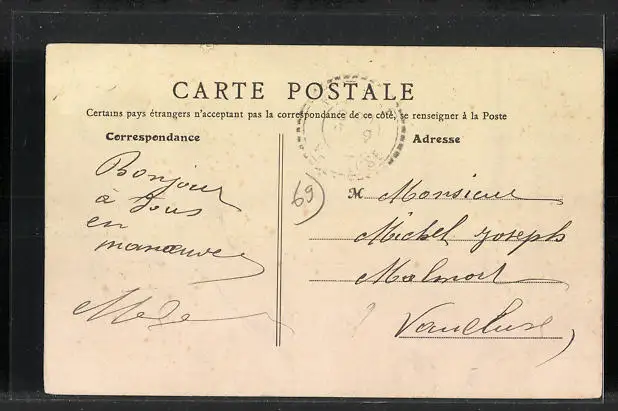 CARTE POSTALE
Certains pays étrangers n'acceptant pas la correspondance de ce côté, se renseigner à la Poste
Correspondance
Adresse
Bonjour
à Tous
en
manœuvre
69
M Monsieur
Michel Joseph
Malmort
Vaucluse